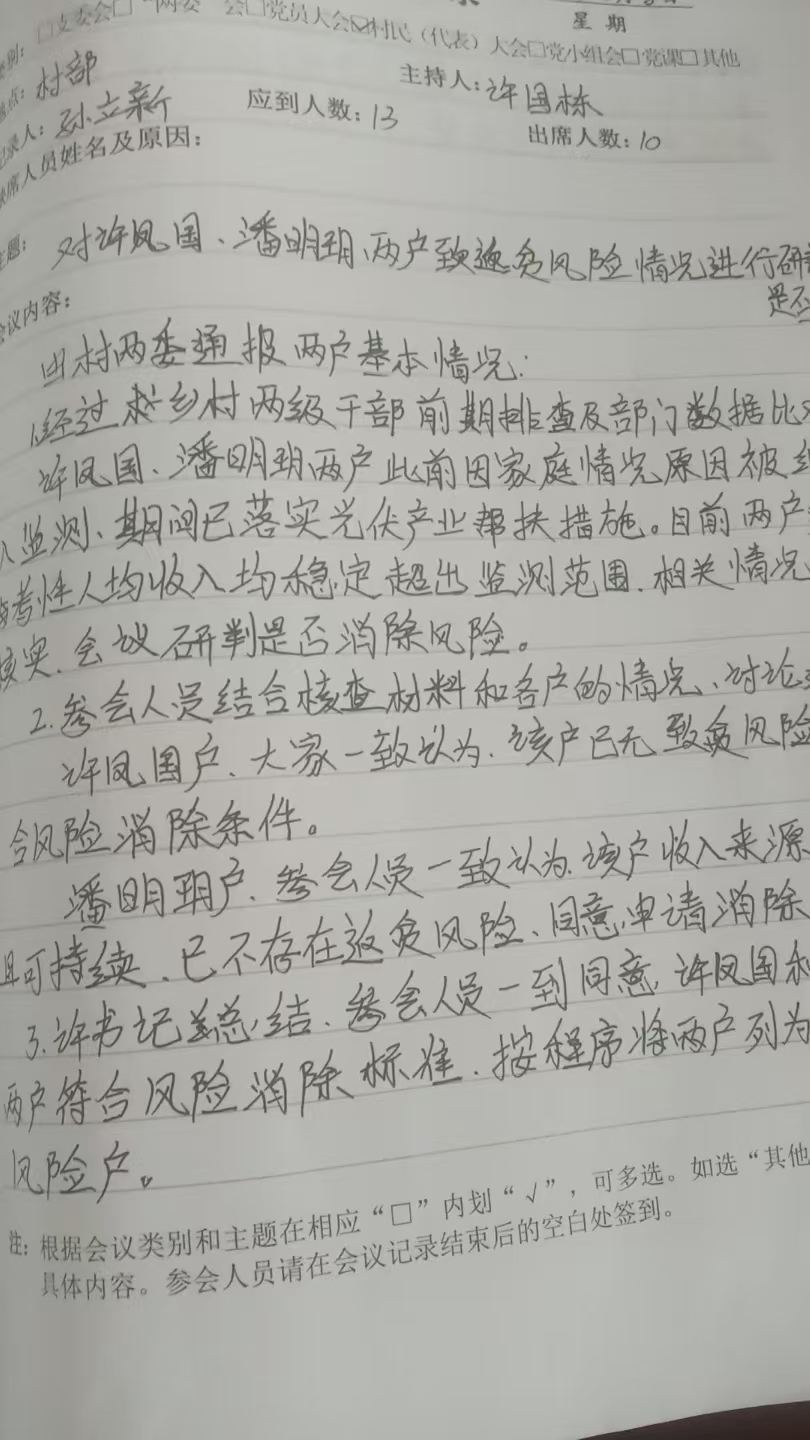 星 期
□支委会□“两委”会□党员大会☑村民（代表）大会□党小组会□党课□其他
点：村部 主持人：许国栋
记录人：孙立新 应到人数：13 出席人数：10
缺席人员姓名及原因：
主题：对许凤国、潘明玥、两户致返贫风险情况进行研
是否
会议内容：
由村两委通报两户基本情况：
1.经过乡村两级干部前期排查及部门数据比对
许凤国、潘明玥两户此前因家庭情况原因被纳
入监测、期间已落实光伏产业帮扶措施。目前两户
参考性人均收入均稳定超出监测范围.相关情况
核实.会议研判是否消除风险。
2.参会人员结合核查材料和各户的情况、讨论
许凤国户、大家一致认为、该户已无致贫风险
合风险消除条件。
潘明玥户、参会人员一致认为.该户收入来源
且可持续、已不存在返贫风险、同意申请消除
3.许书记总结.参会人员一到同意,许凤国和
两户符合风险消除标准.按程序将两户列为
风险户。
注：根据会议类别和主题在相应“□”内划“√”，可多选。如选“其他
具体内容。参会人员请在会议记录结束后的空白处签到。